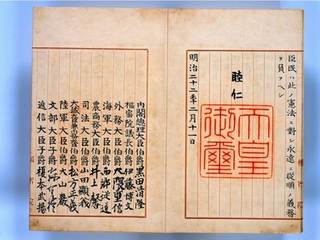 臣民ハ此ノ憲法ニ對シ永遠ニ從順ノ義務
ヲ負フヘシ
睦仁
天皇
御璽
明治二十二年二月十一日
内閣總理大臣伯爵黒田清隆
樞密院議長伯爵伊藤博文
外務大臣伯爵大隈重信
海軍大臣伯爵西郷従道
農商務大臣伯爵井上馨
司法大臣伯爵山田顕義
大蔵大臣兼内務大臣伯爵松方正義
陸軍大臣伯爵大山巌
文部大臣子爵森有禮
逓信大臣子爵榎本武揚